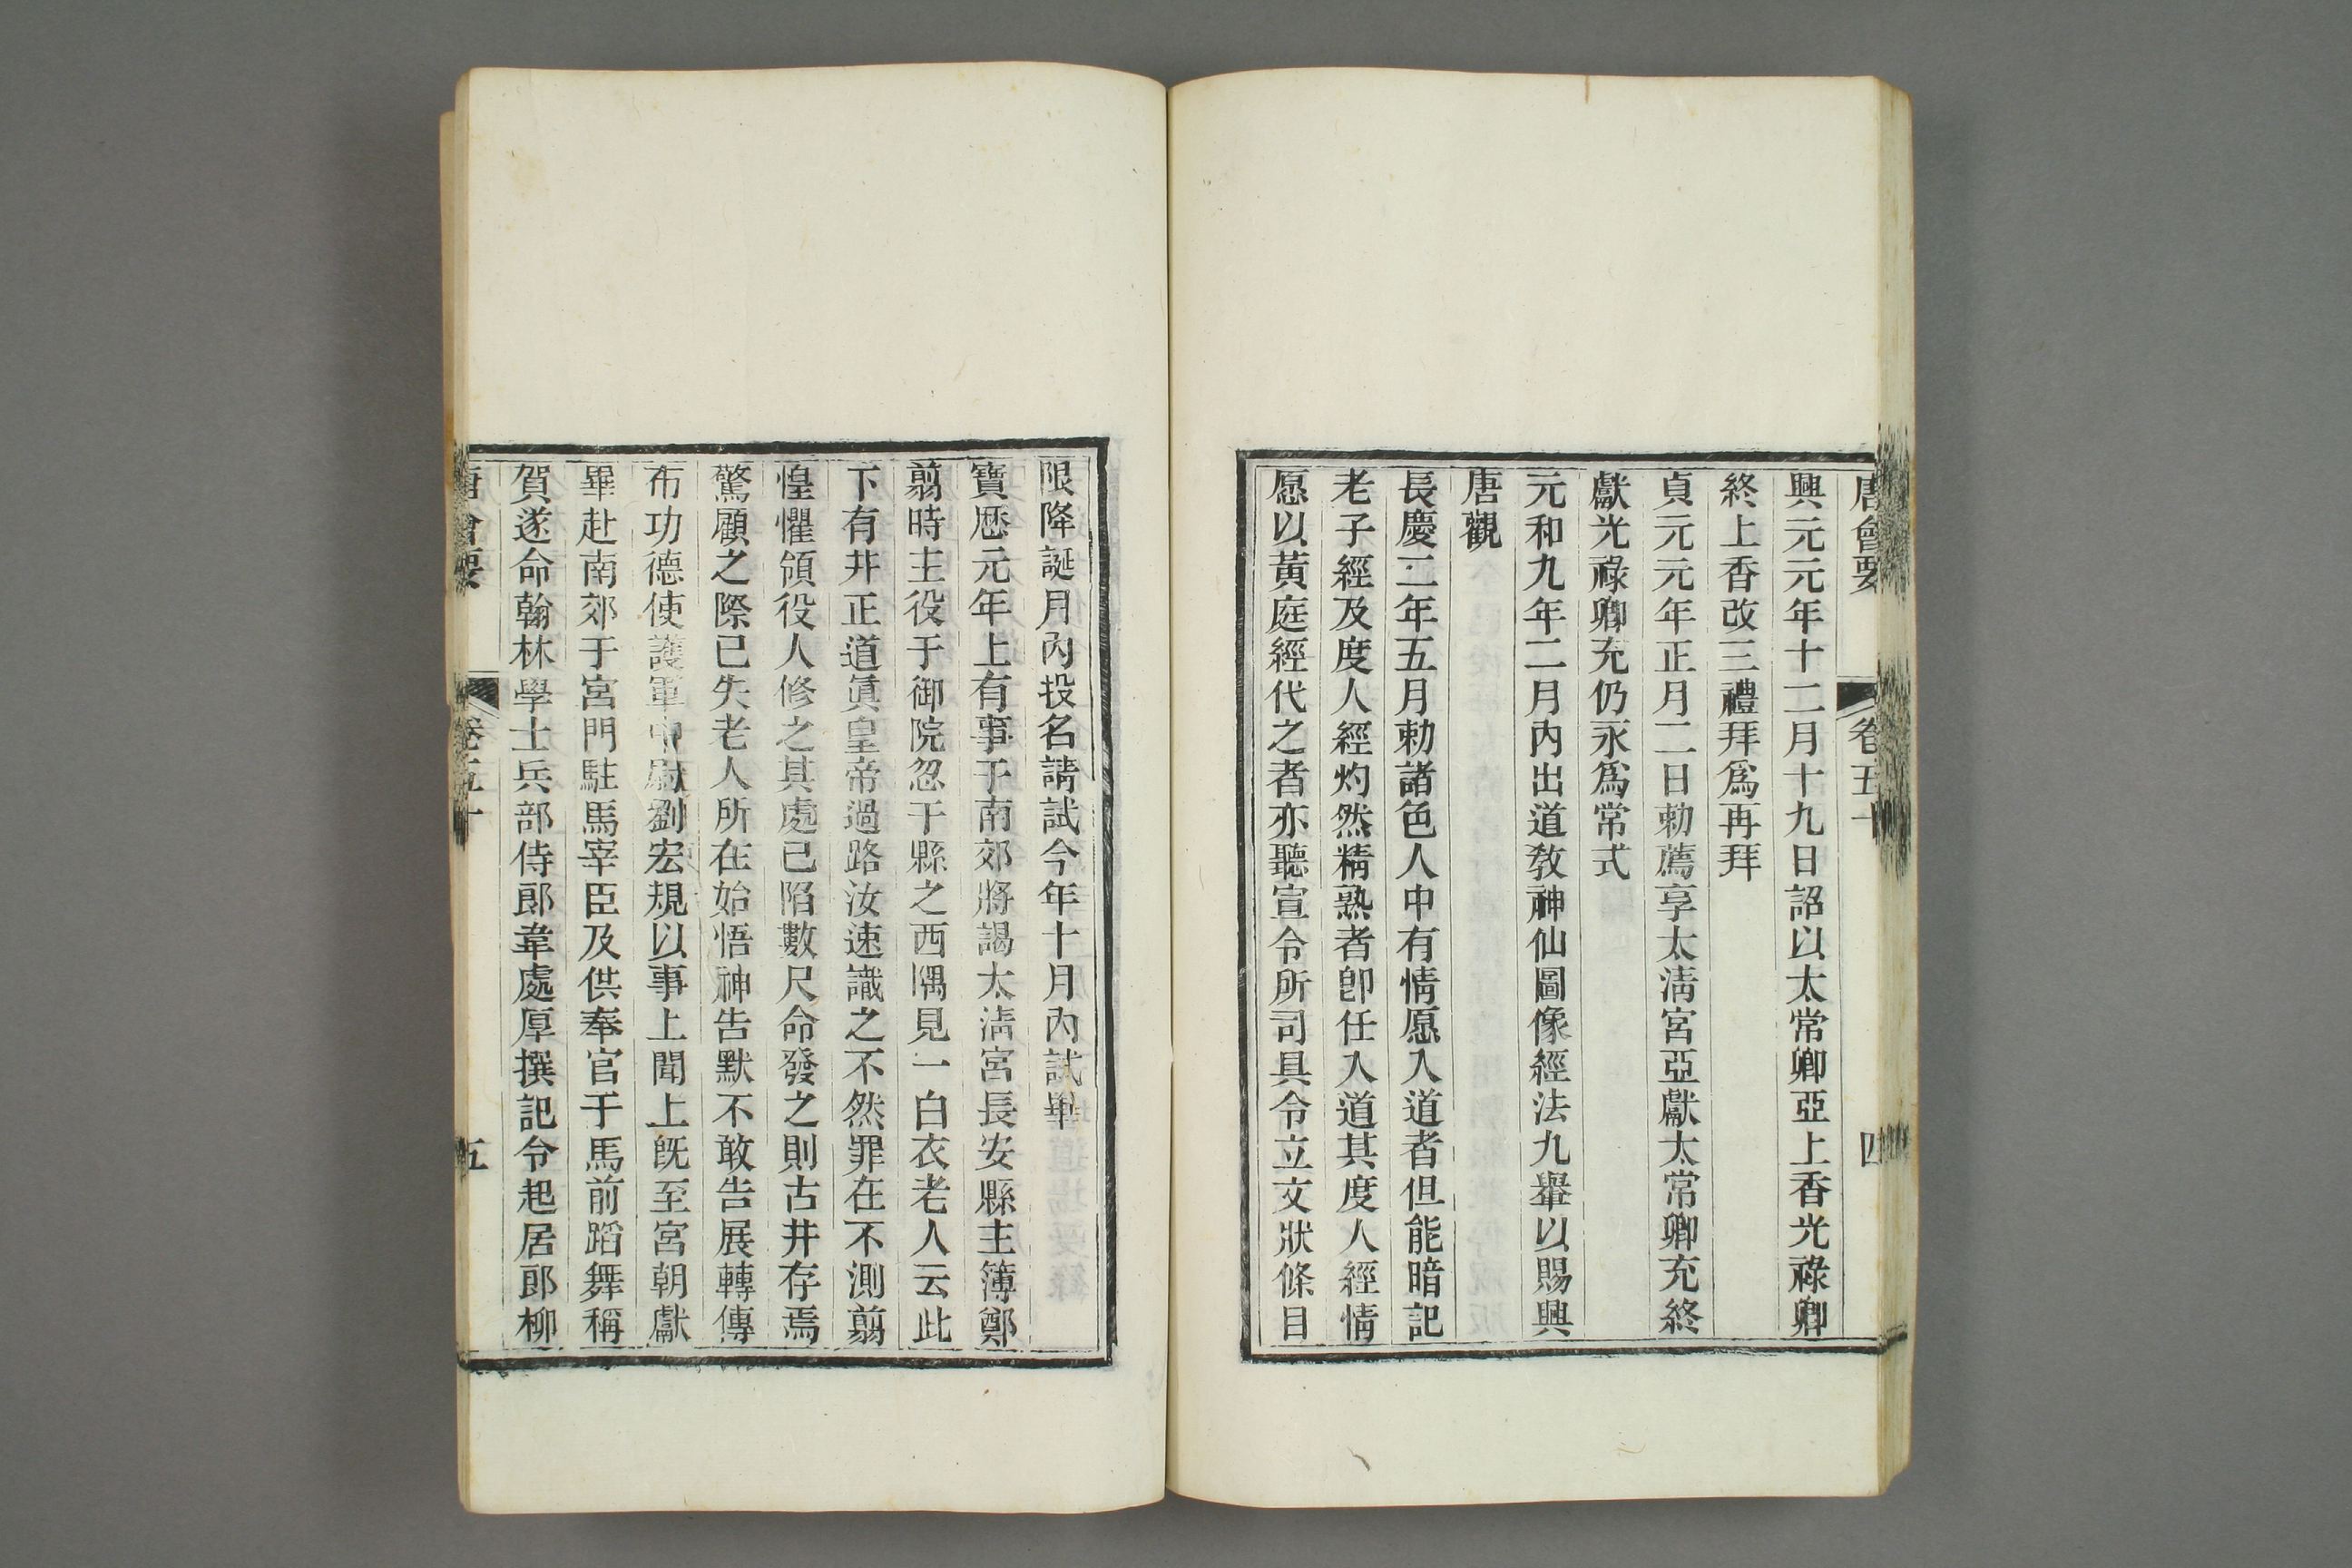 唐會要 卷五十 四
興元元年十二月十九日詔以太常卿亞上香光祿卿
終上香改三禮拜爲再拜
貞元元年正月二日勅薦享太淸宮亞獻太常卿充終
獻光祿卿充仍永爲常式
元和九年二月內出道敎神仙圖像經法九轝以賜興
唐觀
長慶二年五月勅諸色人中有情愿入道者但能暗記
老子經及度人經灼然精熟者卽任入道其度人經情
愿以黃庭經代之者亦聽宣令所司具令立文狀條目
限降誕月內投名請試今年十月內試畢
寶歷元年上有事于南郊將謁太淸宮長安縣主簿鄭
翦時主役于御院忽于縣之西隅見一白衣老人云此
下有井正道眞皇帝過路汝速識之不然罪在不測翦
惶懼領役人修之其處已陷數尺命發之則古井存焉
驚顧之際已失老人所在始悟神告默不敢告展轉傳
布功德使護軍中尉劉宏規以事上聞上旣至宮朝獻
畢赴南郊于宮門駐馬宰臣及供奉官于馬前蹈舞稱
賀遂命翰林學士兵部侍郎韋處厚撰記令起居郎柳
唐會要 卷五十 五